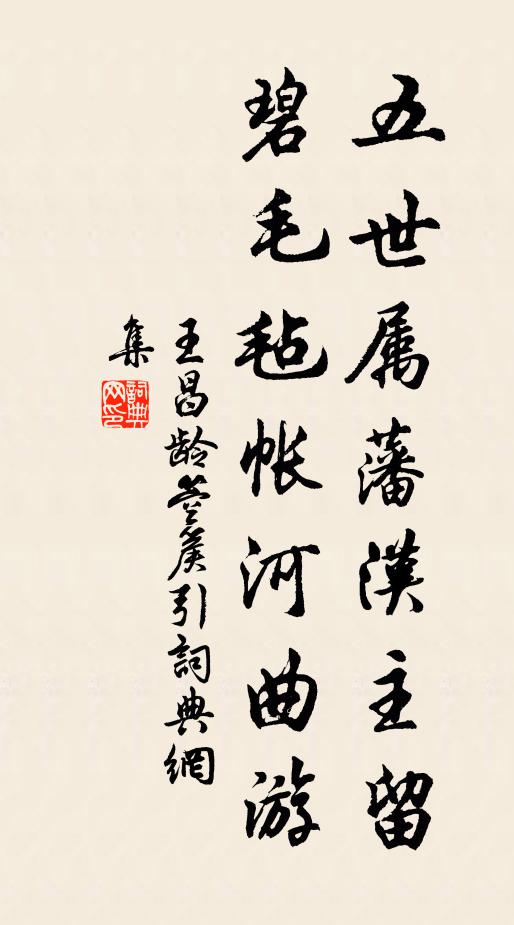 五世属藩漢主留
碧毛毡帐河曲游
王昌龄箜篌引詞典網
集
詞典
网印